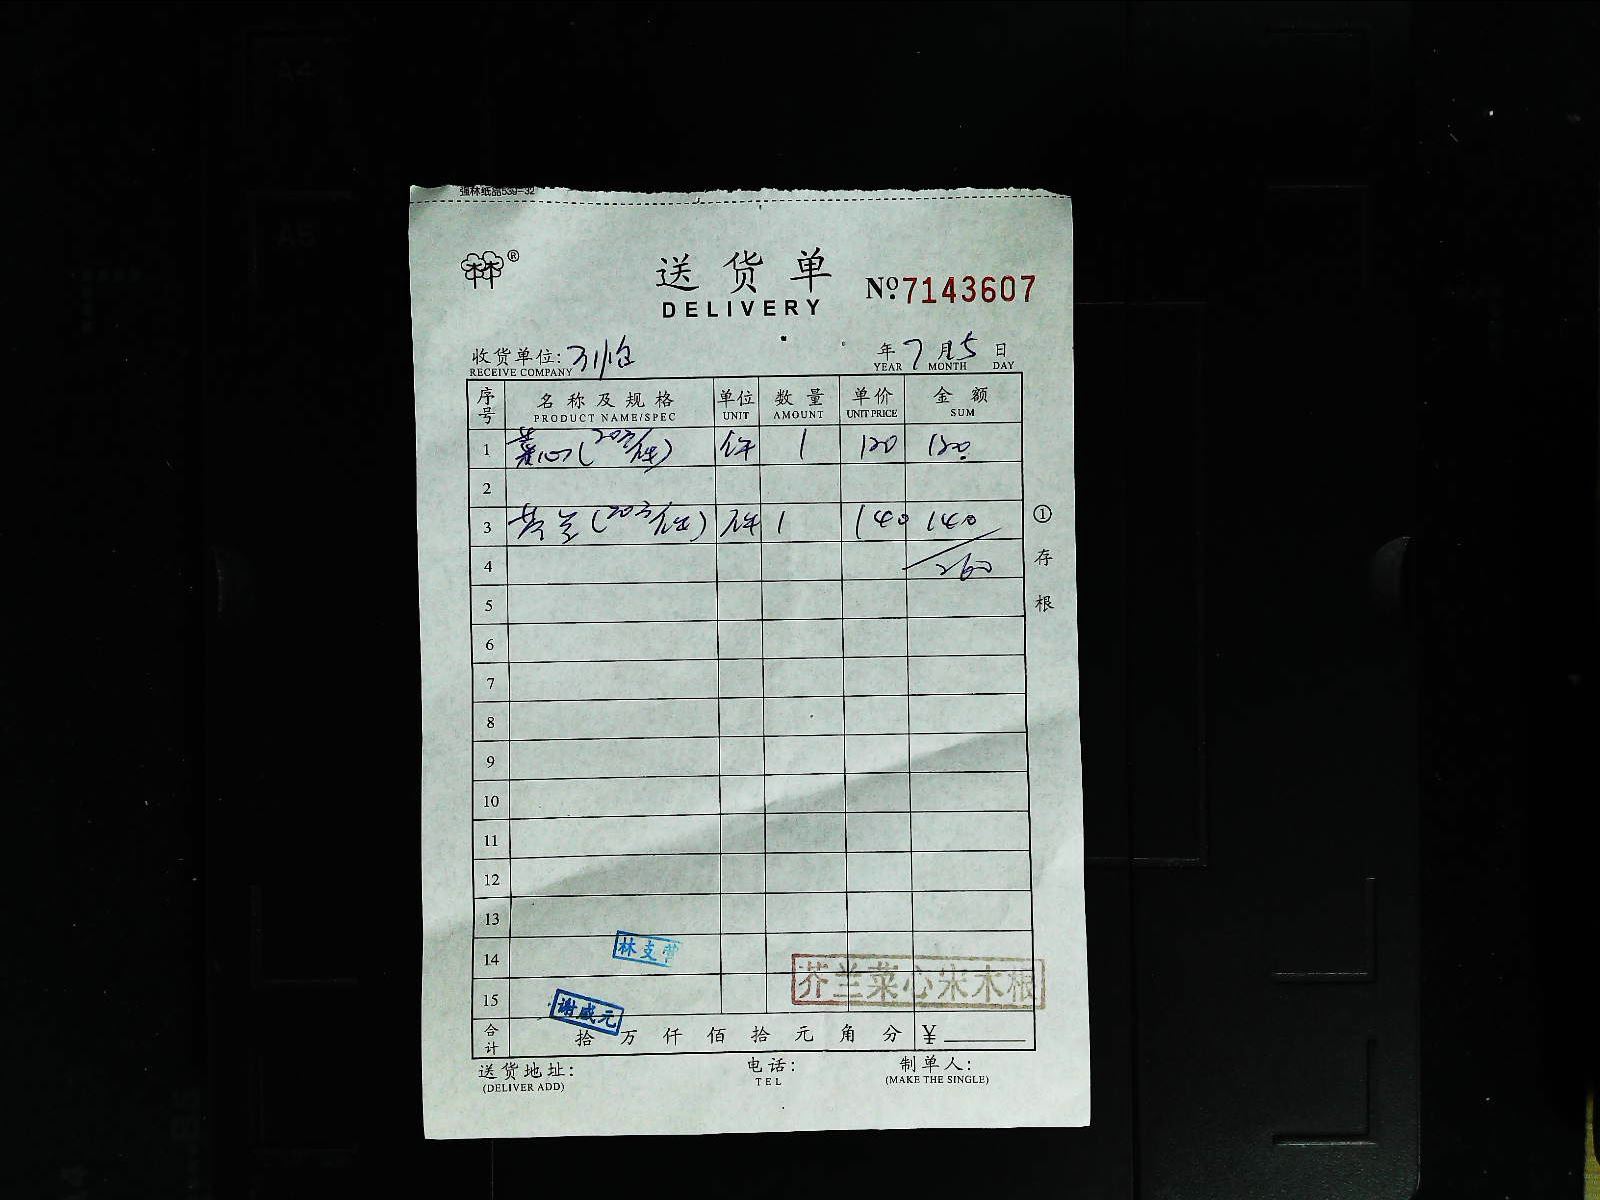 强林纸品539-32
林®
送货单
DELIVERY
№7143607
收货单位:
RECEIVE COMPANY
年 7 月 5 日
YEAR MONTH DAY
序号 名称及规格 单位 数量 单价 金额
PRODUCT NAME/SPEC UNIT AMOUNT UNIT PRICE SUM
1 菜心(20斤/件) 件 1 120 120
2
3 芥兰(20斤/件) 件 1 140 140
4 260
5
6
7
8
9
10
11
12
13
14
15
①存根
林支
芥兰菜心宋木根
谢威元
合计 拾 万 仟 佰 拾 元 角 分 ¥
送货地址: 电话: 制单人:
(DELIVER ADD) TEL (MAKE THE SINGLE)
A4
A5
B5